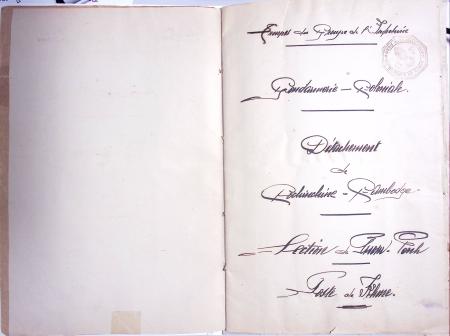 Troupes du Groupe de l'Indochine
Gendarmerie Coloniale.
Détachement
de
Cochinchine - Cambodge.
Section de Pnom-Penh
Poste de